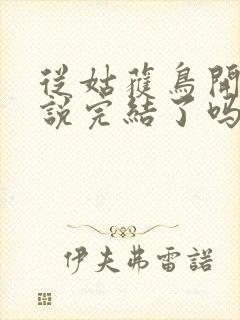 從姑獲鳥開
說完結了嗎
伊夫弗雷諾